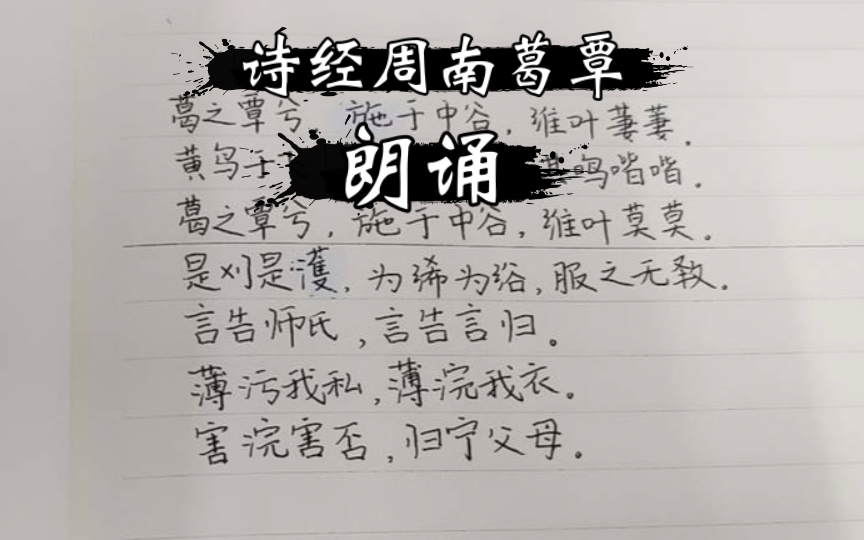 诗经周南葛覃
葛之覃兮 施于中谷，维叶萋萋．
朗诵
黄鸟于 鸣喈喈．
葛之覃兮，施于中谷，维叶莫莫．
是刈是濩，为𫄨为绤，服之无斁．
言告师氏，言告言归．
薄污我私，薄浣我衣．
害浣害否，归宁父母．